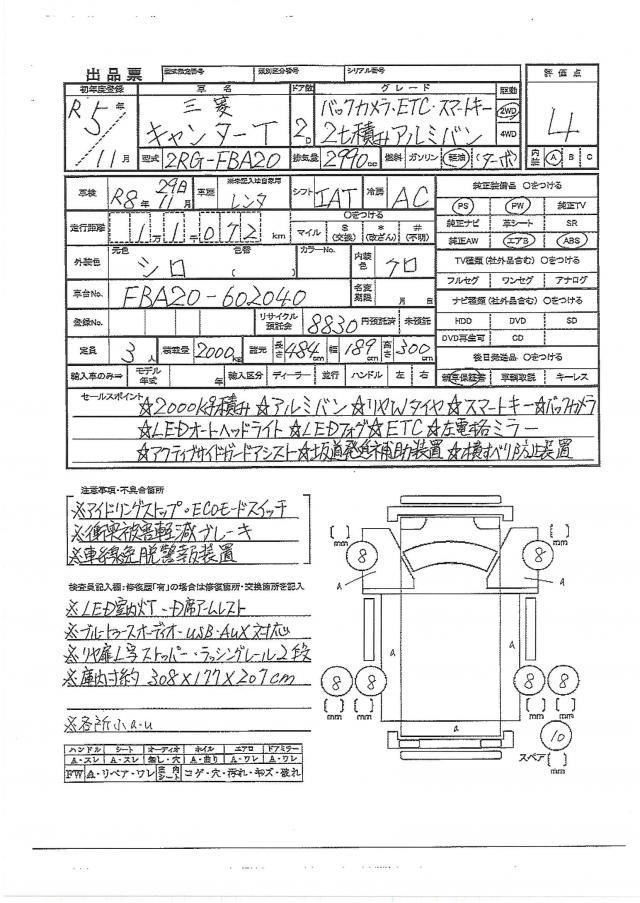 出品票 型式指定番号 類別区分番号 シリアル番号
初年度登録 車名 ドア数 グレード 駆動 評価点
R5年 三菱 バックカメラ・ETC・スマートキー 2WD
11月 キャンターT 2D 2t積みアルミバン 4WD 4
型式 2RG-FBA20 排気量 2990cc 燃料 ガソリン 軽油 (ターボ) 内装 A B C
車検 R8年 29日 11月 車歴 ※未記入は自家用 レンタ シフト IAT 冷房 AC 純正装備品 〇をつける
PS PW 純正TV
走行距離 11万1072km 〇をつける
マイル $(交換) *(改ざん) #(不明) 純正ナビ 革シート SR
純正AW エアB ABS
外装色 元色 シロ 色替 ( ) カラーNo. 内装色 クロ TV種類(社外品含む) 〇をつける
フルセグ ワンセグ アナログ
車台No. FBA20-602040 名変期限 月 日 ナビ種類(社外品含む) 〇をつける
登録No. リサイクル預託金 8830円預託済 未預託 HDD DVD SD
DVD再生可 CD
定員 3人 積載量 2000kg 諸元 長さ484cm 幅189cm 高さ300cm 後日発送品 〇をつける
輸入車のみ⇒ モデル年式 年 輸入区分 ディーラー 並行 ハンドル 左 右 新車保証書 車輌取説 キーレス
セールスポイント ☆2000kg積み☆アルミバン☆リヤWタイヤ☆スマートキー☆バックカメラ
☆LEDオートヘッドライト☆LEDフォグ☆ETC☆左電格ミラー
☆アクティブサイドガードアシスト☆坂道発進補助装置☆横すべり防止装置
注意事項・不具合箇所
※アイドリングストップ・ECOモードスイッチ
※衝突被害軽減ブレーキ
※車線逸脱警報装置
検査員記入欄:修復歴「有」の場合は修復箇所・交換箇所を記入
※LED室内灯・D席アームレスト
※ブルートゥースオーディオ・USB・AUX対応
※リヤ扉L字ストッパー・ラッシングレール2段
※庫内寸約 308×177×207cm
※各所小a.u
ハンドル シート オーディオ ホイル エアロ ドアミラー
A・スレ A・スレ 無し・穴 A・曲り A・ワレ A・ワレ
FW A・リペア・ワレ 室内シート コゲ・穴・汚れ・キズ・破れ
[ ]mm [ ]mm
8 8
A A
A A
8 8 8 8
[ ]mm [ ]mm [ ]mm [ ]mm
a
10
スペア[ ]mm